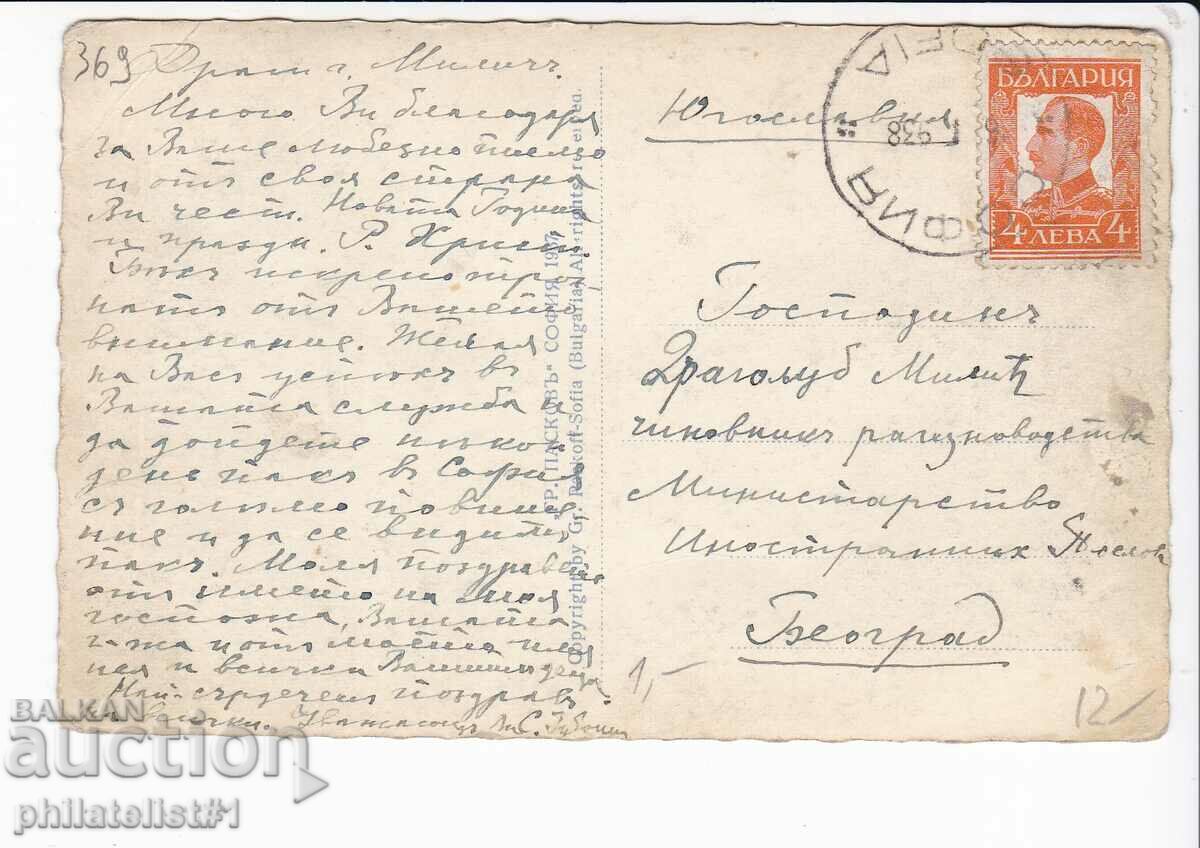 369
Драги г. Миличъ.
Много Ви благодаря
за Ваше любезно писмо
и отъ своя страна
Ви чест. Новата Година
и праздн. Р. Христ.
Бѣхъ искрено тро
натъ отъ Вашето
внимание. Желая
на Васъ успѣхъ въ
Вашата служба и
да дойдете нѣкой
день пакъ въ София
съ голѣмо повише
ние и да се видимъ
пакъ. Моля поздравете
отъ името на моя
госпожа, Вашата
г-жа и отъ моето име
нея и всички Ваши деца
Най-сърдеченъ поздравъ
всички.
"ГР. ПАСКОВЪ" СОФИЯ 1937
Copyright by Gr. Paskoff-Sofia (Bulgaria) All rights reserved.
Югославия
СОФИЯ
SOFIA
938
БЪЛГАРИЯ
4 ЛЕВА 4
Господинъ
Драгољуб Милић
чиновникъ
Министарство
Иностраних Послова
Београд
1,-
12/
BALKAN
auction
philatelist#1